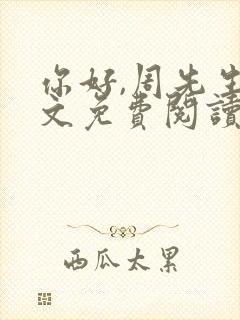 你好,周先生
文免費閱讀
西瓜太累